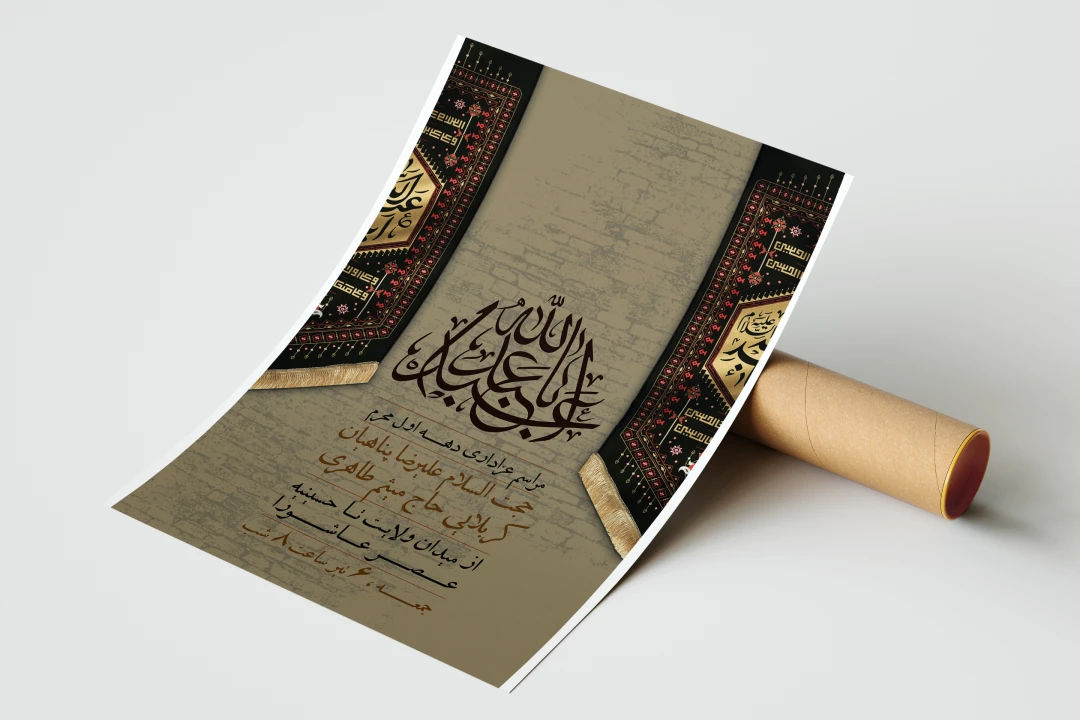 یا اباعبدالله
مراسم عزاداری دهه اول محرم
حجت السلام علیرضا پناهیان
کربلایی حاج میثم طاهری
از میدان ولایت تا حسینیه
عصر عاشورا
جمعه ، ۶ تیر ساعت ۸ شب